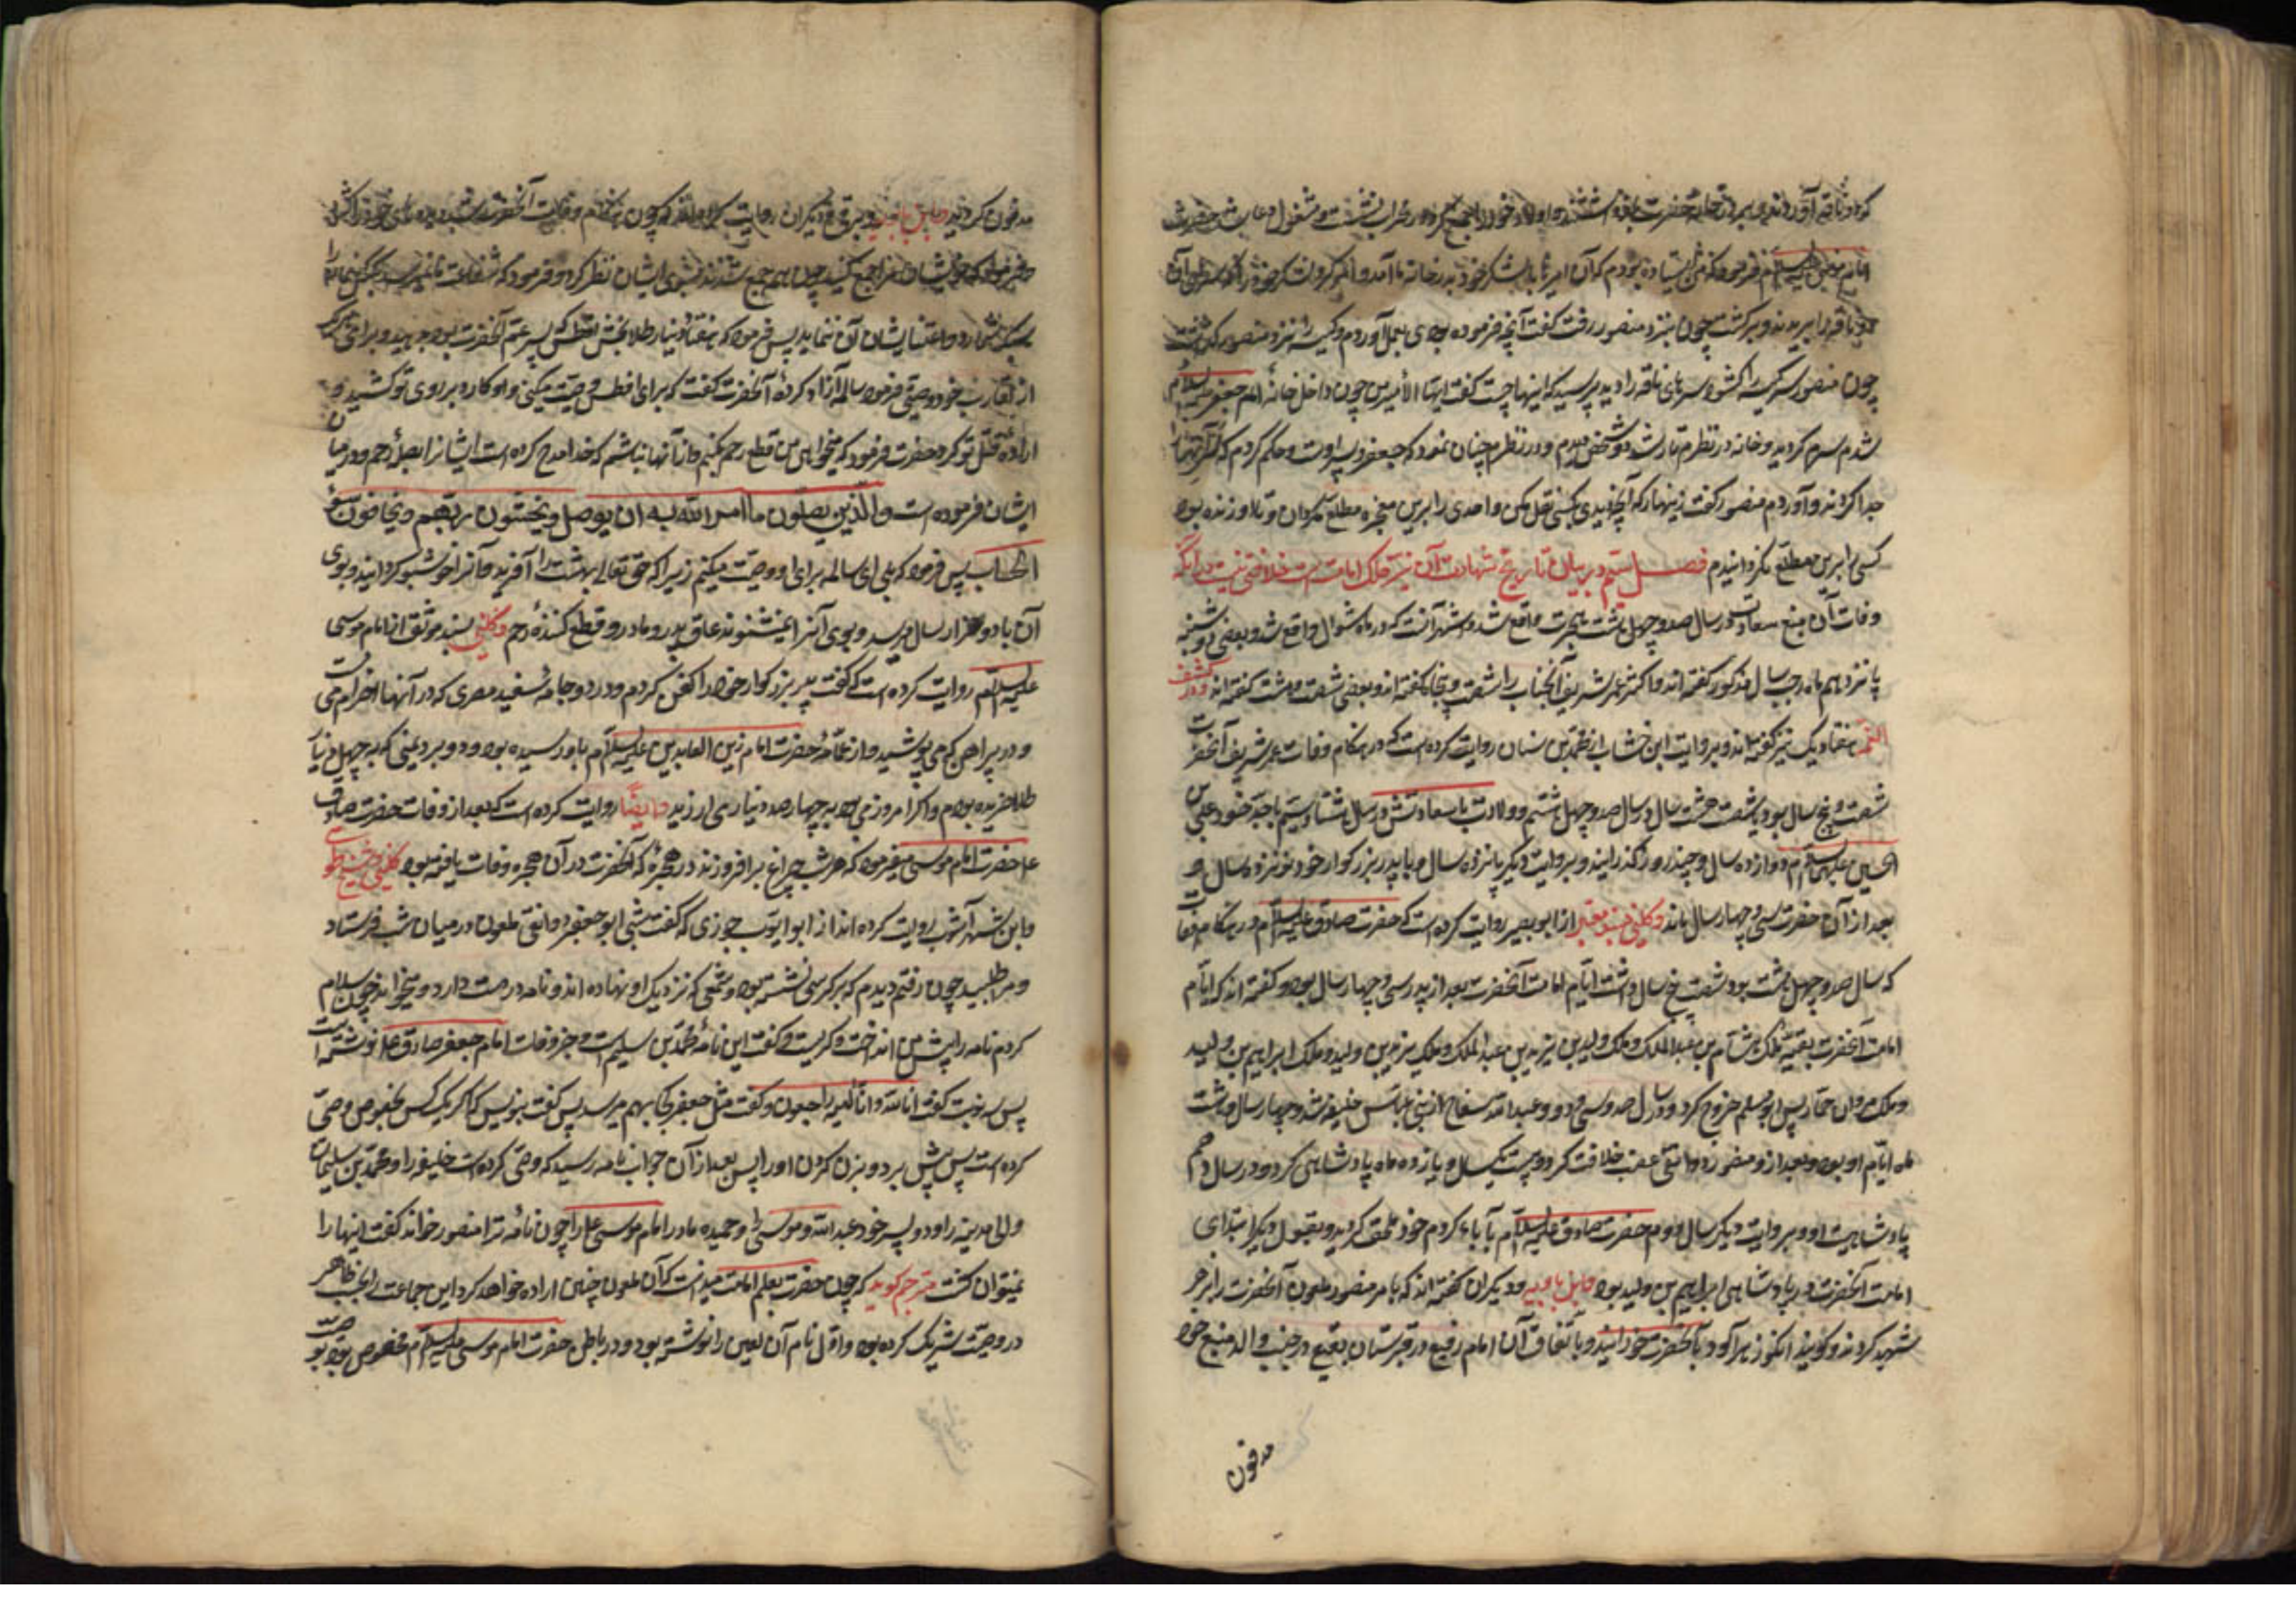 که دو ناقه آوردند و بر در خانه حضرت بازداشتند و اولاد خود را جمع کرد و در محراب نشست و مشغول دعا شد حضرت
امام موسی علیه السلام فرمود که من ایستاده بودم که آن امیر با لشکر خود بدر خانه ما آمد و امر کرد لشکر خود را که سرهای آن
دو ناقه را بریدند و برگشت چون بنزد منصور رفت گفت آنچه فرموده بودی بعمل آوردم و کیسه را نزد منصور گذاشت
چون منصور سر کیسه را گشود سرهای ناقه را دید پرسید که اینها چیست گفت ایها الأمیر من چون داخل خانه امام جعفر علیه السلام
شدم سرم گردید و خانه در نظرم تار شد دو شخص دیدم و در نظرم چنان نمود که جعفر و پسر اوست و حکم کردم که سر آنها را
جدا کردند و آوردم منصور گفت زینهار که آنچه دیدی بکسی نقل مکن و احدی را بر این معجزه مطلع مگردان و تا او زنده بود
کسی را بر این مطلع نگردانیدم فصل سیم در بیان تاریخ شهادت آن نیر فلک امامت است خلافی نیست در آنکه
وفات آن منبع سعادت در سال صد و چهل و هشت هجرت واقع شد و اشهر آنست که در ماه شوال واقع شد و بعضی دوشنبه
پانزدهم ماه رجب سال مذکور گفته اند و اکثر عمر شریف آنجناب را شصت و پنج گفته اند و بعضی شصت و هشت گفته اند و در کشف
الغمه هفتاد و یک نیز گفته اند و بروایت ابن خشاب از محمد بن سنان روایت کرده است که در هنگام وفات عمر شریف آنحضرت
شصت و پنج سال بود یا شصت و هشت سال در سال صد و چهل و هشتم و ولادت با سعادتش در سال هشتاد و سیم با جد خود علی بن
الحسین علیهما السلام دوازده سال و چند روز گذرانید و بروایت دیگر پانزده سال و با پدر بزرگوار خود نوزده سال و
بعد از آن حضرت سی و چهار سال ماند و کلینی بسند معتبر از ابو بصیر روایت کرده است که حضرت صادق علیه السلام در هنگام وفات
که سال صد و چهل و هشت بود شصت و پنج سال داشت ایام امامت آنحضرت بعد از پدر سی و چهار سال بود و گفته اند که ایام
امامت آنحضرت بقیه ملک هشام بن عبدالملک و ملک ولید بن یزید بن عبدالملک و ملک یزید بن ولید و ملک ابراهیم بن ولید
و ملک مروان حمار پس ابو مسلم خروج کرد و در سال صد و سی و دو و عبدالله سفاح از بنی عباس خلیفه شد و چهار سال و هشت
ماه ایام او بود و بعد از او منصور دوانقی غصب خلافت کرد و بیست و یکسال و یازده ماه پادشاهی کرد و در سال دهم
پادشاهیت او و بروایت دیگر سال دوم حضرت صادق علیه السلام بآباء کرام خود ملحق گردید و بقول دیگر ابتدای
امامت آنحضرت در پادشاهی ابراهیم بن ولید بود و ابن بابویه و دیگران گفته اند که بامر منصور ملعون آنحضرت را بزهر
شهید کردند و گویند انگور زهرآلود بآنحضرت خورانیدند و باتفاق آن امام رفیع در قبرستان بقیع در جنب والد منیع خود
مدفون
مدفون گردید و ابن بابویه و برقی و دیگران روایت کرده اند که چون هنگام وفات آنحضرت شد دیده های خود را گشود
فرمود که خویشان مرا جمع کنید چون همه جمع شدند بسوی ایشان نظر کرد و فرمود که شفاعت ما نمیرسد بکسی که نماز را
سبک شمارد و اعتنا بشان آن ننماید پس فرمود که هفتاد دینار طلا بحسن افطس که پسر عم آنحضرت بود بدهید و برای هر یک
از اقارب خود وصیتی فرمود سالمه آزاد کرده آنحضرت گفت که برای افطس وصیت میکنی و او کارد بر روی تو کشید و
اراده قتل تو کرد حضرت فرمود که میخواهی من قطع رحم بکنم و از آنها نباشم که خدا مدح کرده است ایشان را بصله رحم و در میان
ایشان فرموده است والذین یصلون ما امر الله به ان یوصل ویخشون ربهم ویخافون سوء
الحساب پس فرمود که بلی ای سالمه برای او وصیت میکنم زیرا که حق تعالی بهشت را آفرید و آنرا خوشبو گردانید و بوی
آن تا دو هزار سال میرسد و بوی آنرا نمیشنوند عاق پدر و مادر و قطع کننده رحم و کلینی بسند موثق از امام موسی
علیه السلام روایت کرده است که گفت پدر بزرگوار خود را کفن کردم در دو جامه سفید مصری که در آنها احرام می بست
و در پیراهنی که می پوشید و از عمامه حضرت امام زین العابدین علیه السلام باو رسیده بود و در برد یمنی که به چهل دینار
طلا خریده بودم و اگر امروز می بود به چهارصد دینار می ارزید و ایضا روایت کرده است که بعد از وفات حضرت صادق
ع حضرت امام موسی میفرمود که هر شب چراغ برافروزند در حجره که آنحضرت در آن حجره وفات یافته بود کلینی و شیخ طوسی
و ابن شهرآشوب روایت کرده اند از ابو ایوب جوزی که گفت شبی ابو جعفر دوانقی ملعون در میان شب فرستاد
و مرا طلبید چون رفتم دیدم که بر کرسی نشسته بود و شمعی که نزدیک او نهاده اند و نامه در دست دارد و میخواند چون سلام
کردم نامه را پیش من انداخت و گریست و گفت این نامه محمد بن سلیمانست و خبر وفات امام جعفر صادق ع نوشته است
پس سه نوبت گفت انا لله وانا الیه راجعون و گفت مثل جعفر کجا بهم میرسد پس گفت بنویس که اگر یک کس بخصوص وصی
کرده است پس پیش برد و بزن گردن او را پس بعد از آن جواب نامه رسید که وصی کرده است خلیفه را و محمد بن سلیمان
والی مدینه را و دو پسر خود عبدالله و موسی را و حمیده مادر امام موسی ع را چون نامه ترا منصور خواند گفت اینها را
نمیتوان کشت مترجم گوید که چون حضرت بعلم امامت میدانست که آن ملعون چنین اراده خواهد کرد این جماعت را بحسب ظاهر
در وصیت شریک کرده بود و اول نام آن لعین را نوشته بود و در باطن حضرت امام موسی علیه السلام مخصوص بود بوصیت